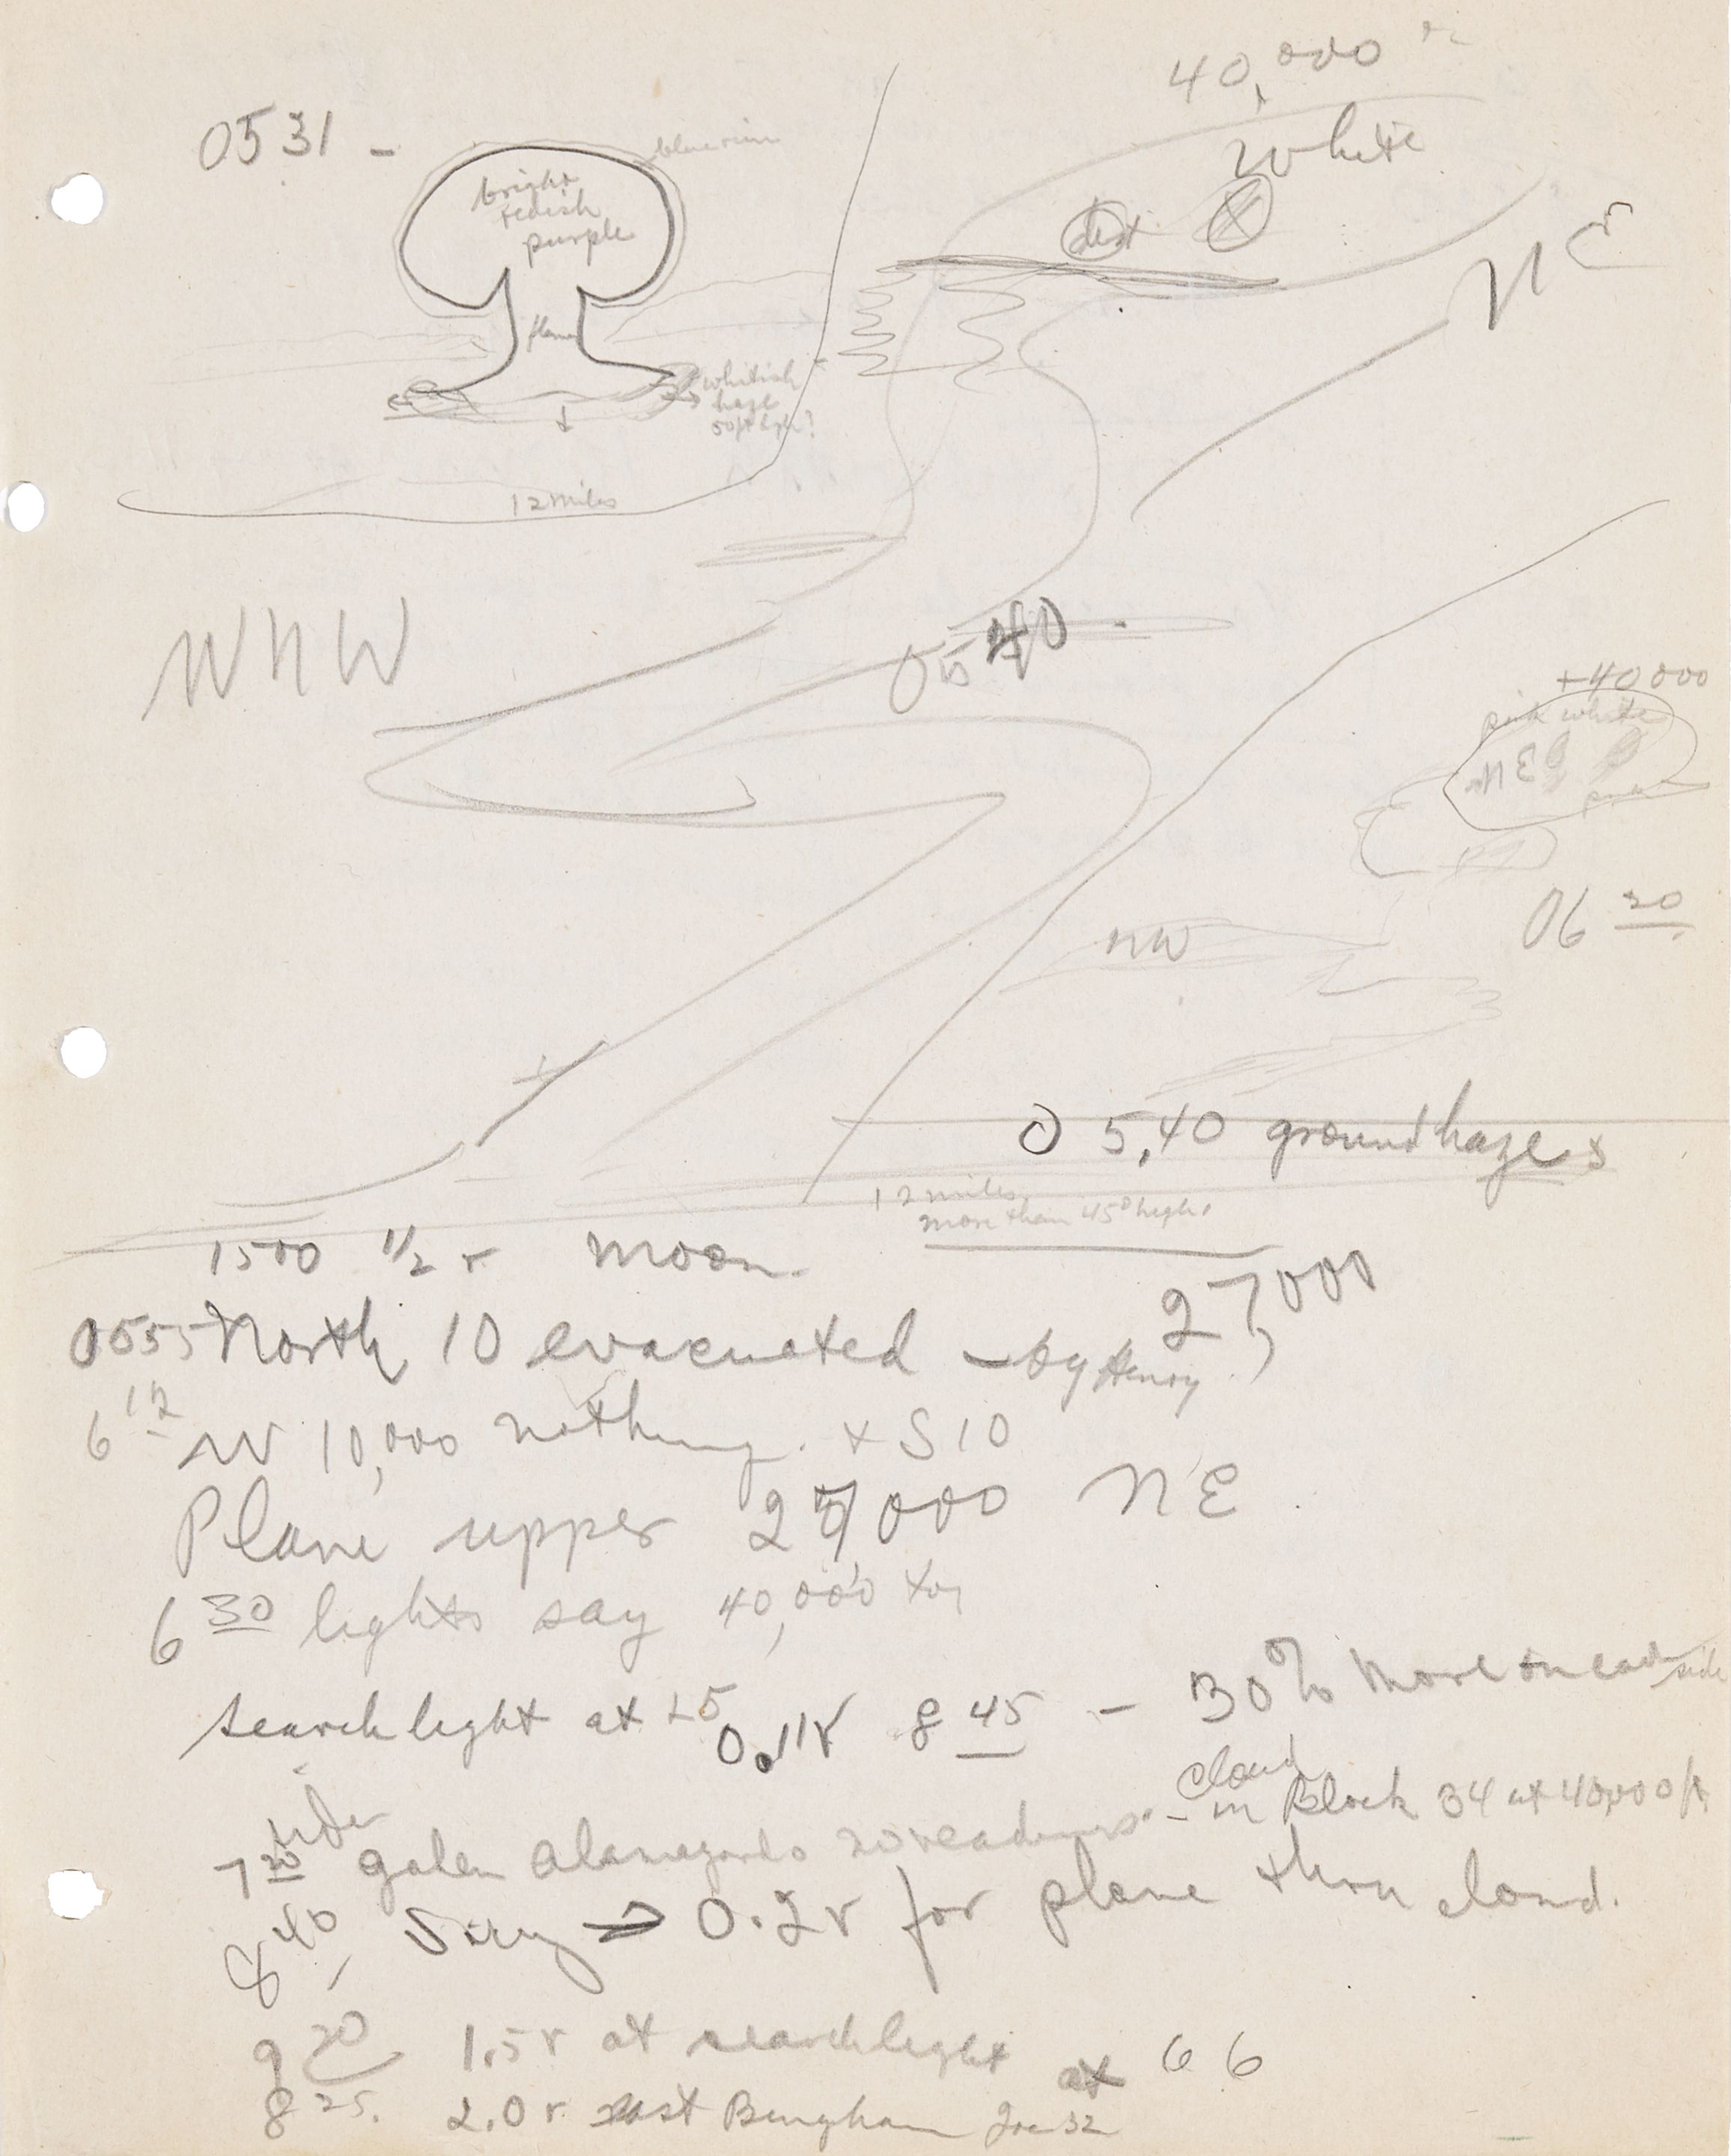 0531 -
blue rim
bright
redish
purple
flame
whitish
haze
12 miles
40,000
White
dust
NE
WNW
0540
+40000
pink white
NE
pink
06 20
NW
05,40 ground haze
12 miles
more than 45° high
27,000
1500 1/2 r moon
0555 North 10 evacuated - by Henry
6 12 W 10,000 nothing. + S 10
Plane upper 27000 NE
6 30 lights say 40,000
searchlight at L5 0.1r 8 45 - 30% more on east side
7 20 Galen Alamagordo no readings - cloud in Block 34 at 40,000 ft
8 40 → 0.2r for plane thru cloud.
9 20 1.5r at searchlight at 66
8 25. 2.0r east Bingham